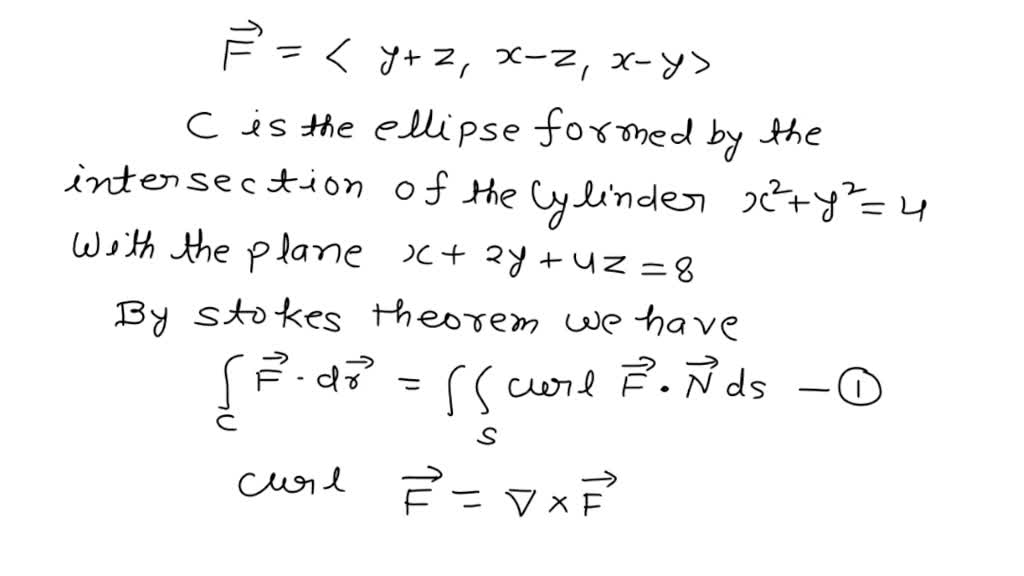 F⃗ = < y+z, x-z, x-y>
C is the ellipse formed by the
intersection of the Cylinder x²+y²=4
With the plane x+2y+4z=8
By stokes theorem we have
∫_C F⃗ · dr⃗ = ∬_S curl F⃗ · N⃗ ds — ①
curl F⃗ = ∇ × F⃗